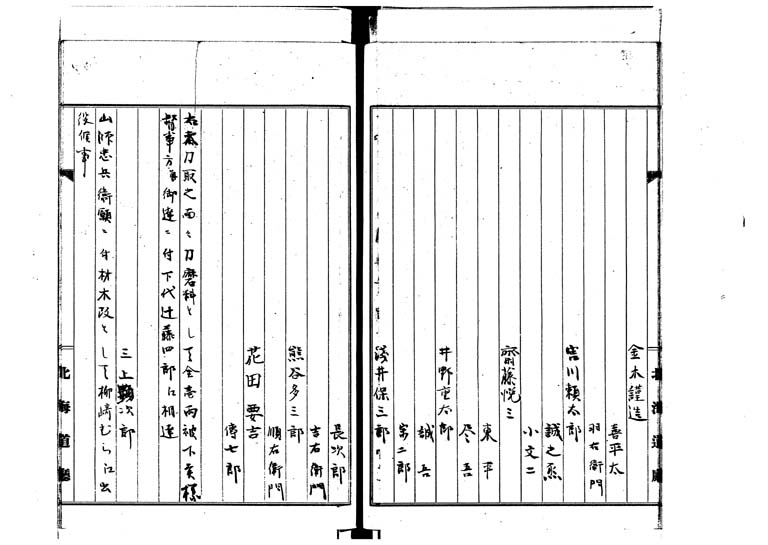 金木謹造
喜平太
羽右衛門
吉川頼太郎
誠之烝
小文二
齋藤悦三
東平
尽吾
井野重太郎
誠吾
宗二郎
浅井保三郎
長次郎
吉右衛門
熊谷多三郎
順右衛門
花田要吉
傳七郎
刀取之面々刀磨料として金壱両被下置様
御達ニ付下代辻藤四郎江相達
三上
次郎
山師忠兵衛願ニ付材木改として柳崎むら江出
役候事
北海道廳